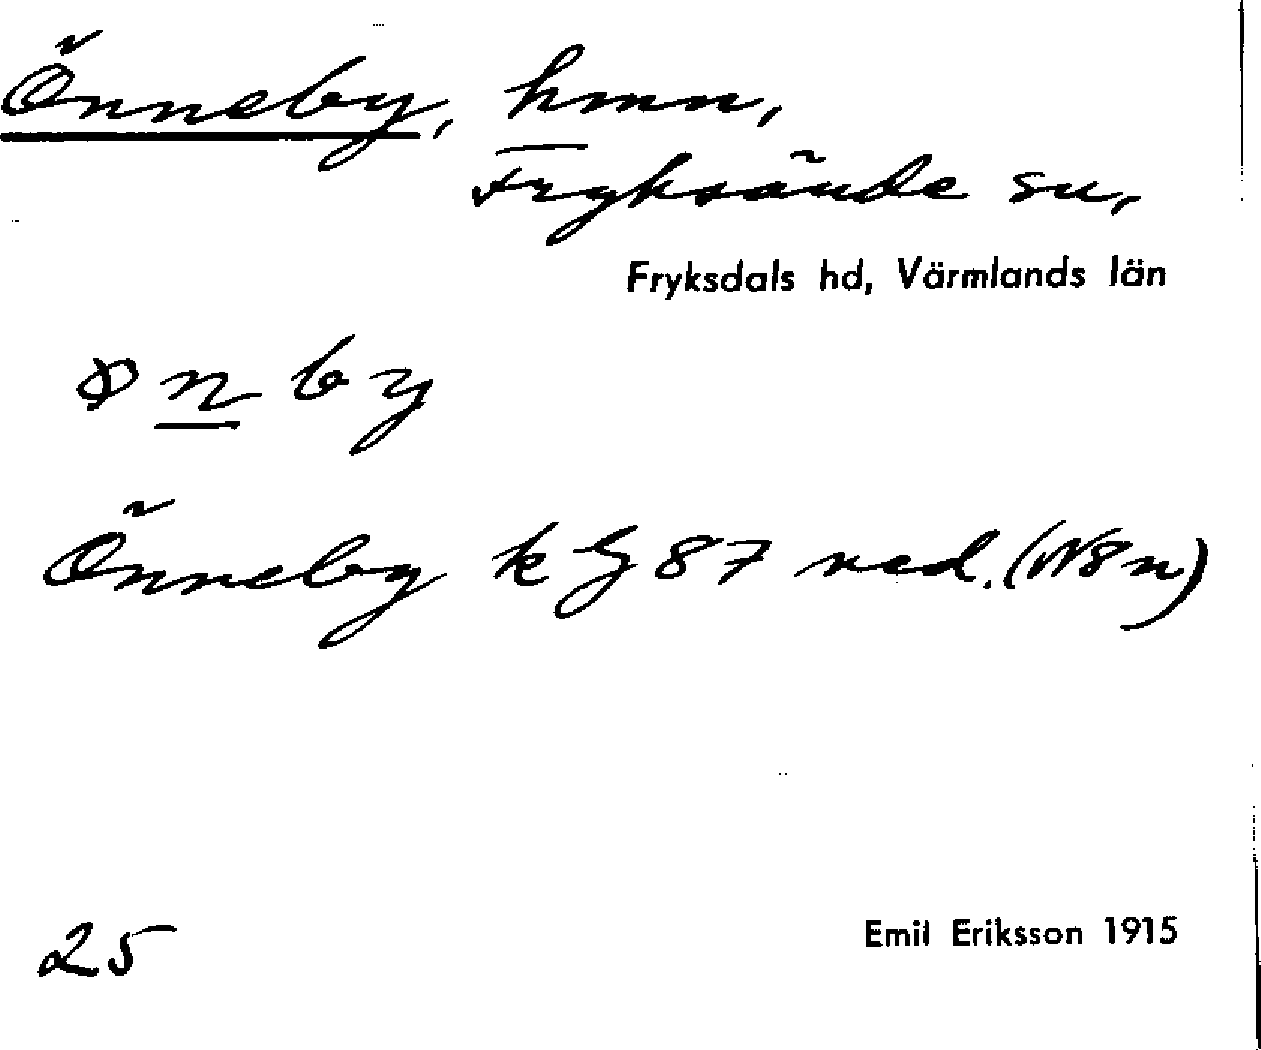 Önneby, hmn,
Fryksände sn,
Fryksdals hd, Värmlands län
ꞩnby
Önneby k G 87 ned. (N8n)
25
Emil Eriksson 1915